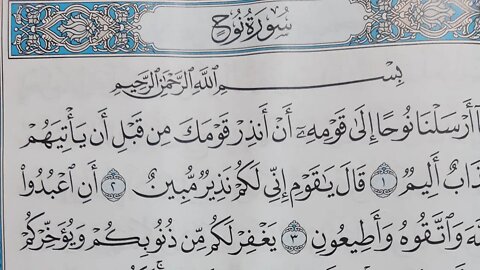 سُورَةُ نُوحٍ
بِسْمِ اللَّهِ الرَّحْمَٰنِ الرَّحِيمِ
أَرْسَلْنَا نُوحًا إِلَىٰ قَوْمِهِۦٓ أَنْ أَنذِرْ قَوْمَكَ مِن قَبْلِ أَن يَأْتِيَهُمْ
أَلِيمٌ ١ قَالَ يَٰقَوْمِ إِنِّى لَكُمْ نَذِيرٌ مُّبِينٌ ٢ أَنِ ٱعْبُدُوا۟
وَٱتَّقُوهُ وَأَطِيعُونِ ٣ يَغْفِرْ لَكُم مِّن ذُنُوبِكُمْ وَيُؤَخِّرْكُمْ